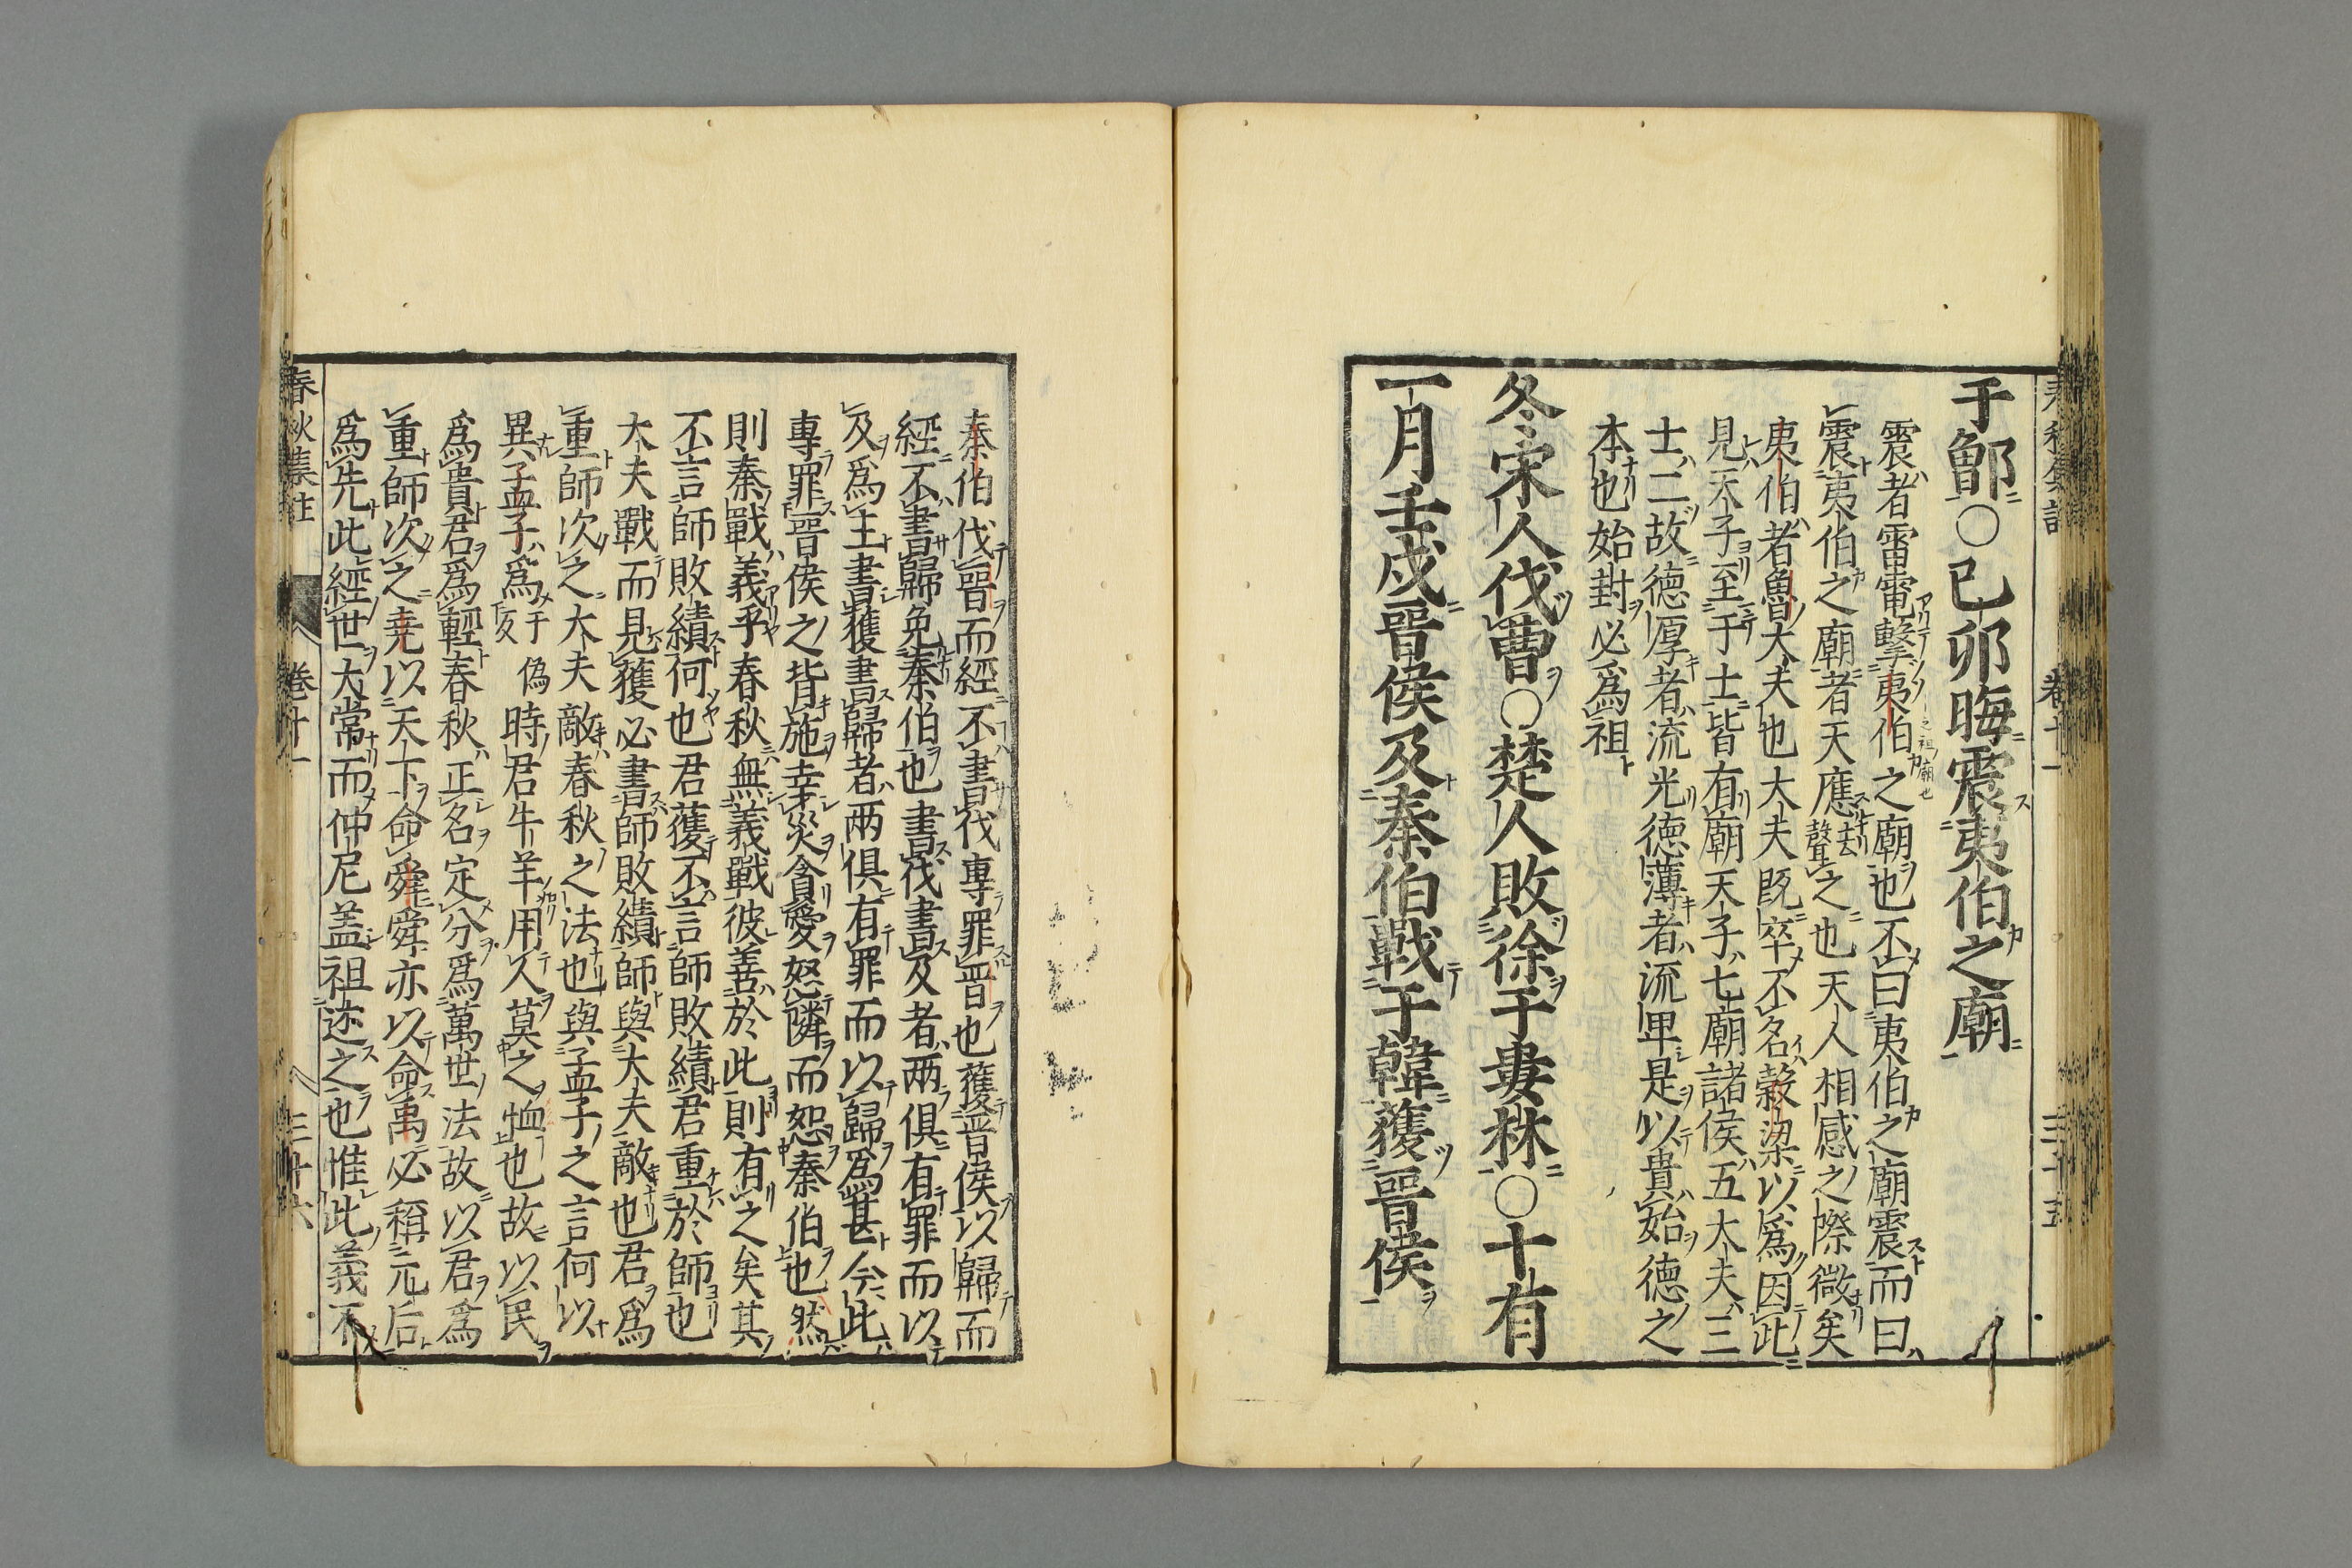 于鄫○己卯晦震夷伯之廟
震者雷電擊夷伯之廟也不曰夷伯之廟震而曰
震夷伯之廟者天應去聲之也天人相感之際微矣
夷伯者魯大夫也大夫既卒不名穀梁以爲因此
見天子至于士皆有廟天子七廟諸侯五大夫三
士二故德厚者流光德薄者流卑是以貴始德之
本也始封必爲祖
冬宋人伐曹○楚人敗徐于婁林○十有
一月壬戌晉侯及秦伯戰于韓獲晉侯
秦伯伐晉而經不書伐專罪晉也獲晉侯以歸而
經不書歸免秦伯也書伐書及者兩俱有罪而以
及爲主書獲書歸者兩俱有罪而以歸爲甚今此
專罪晉侯之背施幸災貪愛怒隣而恕秦伯也然
則秦戰義乎春秋無義戰彼善於此則有之矣其
不言師敗績何也君獲不言師敗績君重於師也
大夫戰而見獲必書師敗績師與大夫敵也君爲
重師次之大夫敵春秋之法也與孟子之言何以
異孟子爲于僞反時君牛羊用人莫之恤也故以民
爲貴君爲輕春秋正名定分爲萬世法故以君爲
重師次之堯以天下命舜舜亦以命禹必稱元后
爲先此經世大常而仲尼蓋祖述之也惟此義不
春秋集註 卷十一 三十六